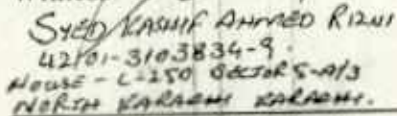 SYED KASHIF AHMED RIZVI
42101-3103834-9.
HOUSE - L-250 SECTOR 5-A/3
NORTH KARACHI KARACHI.